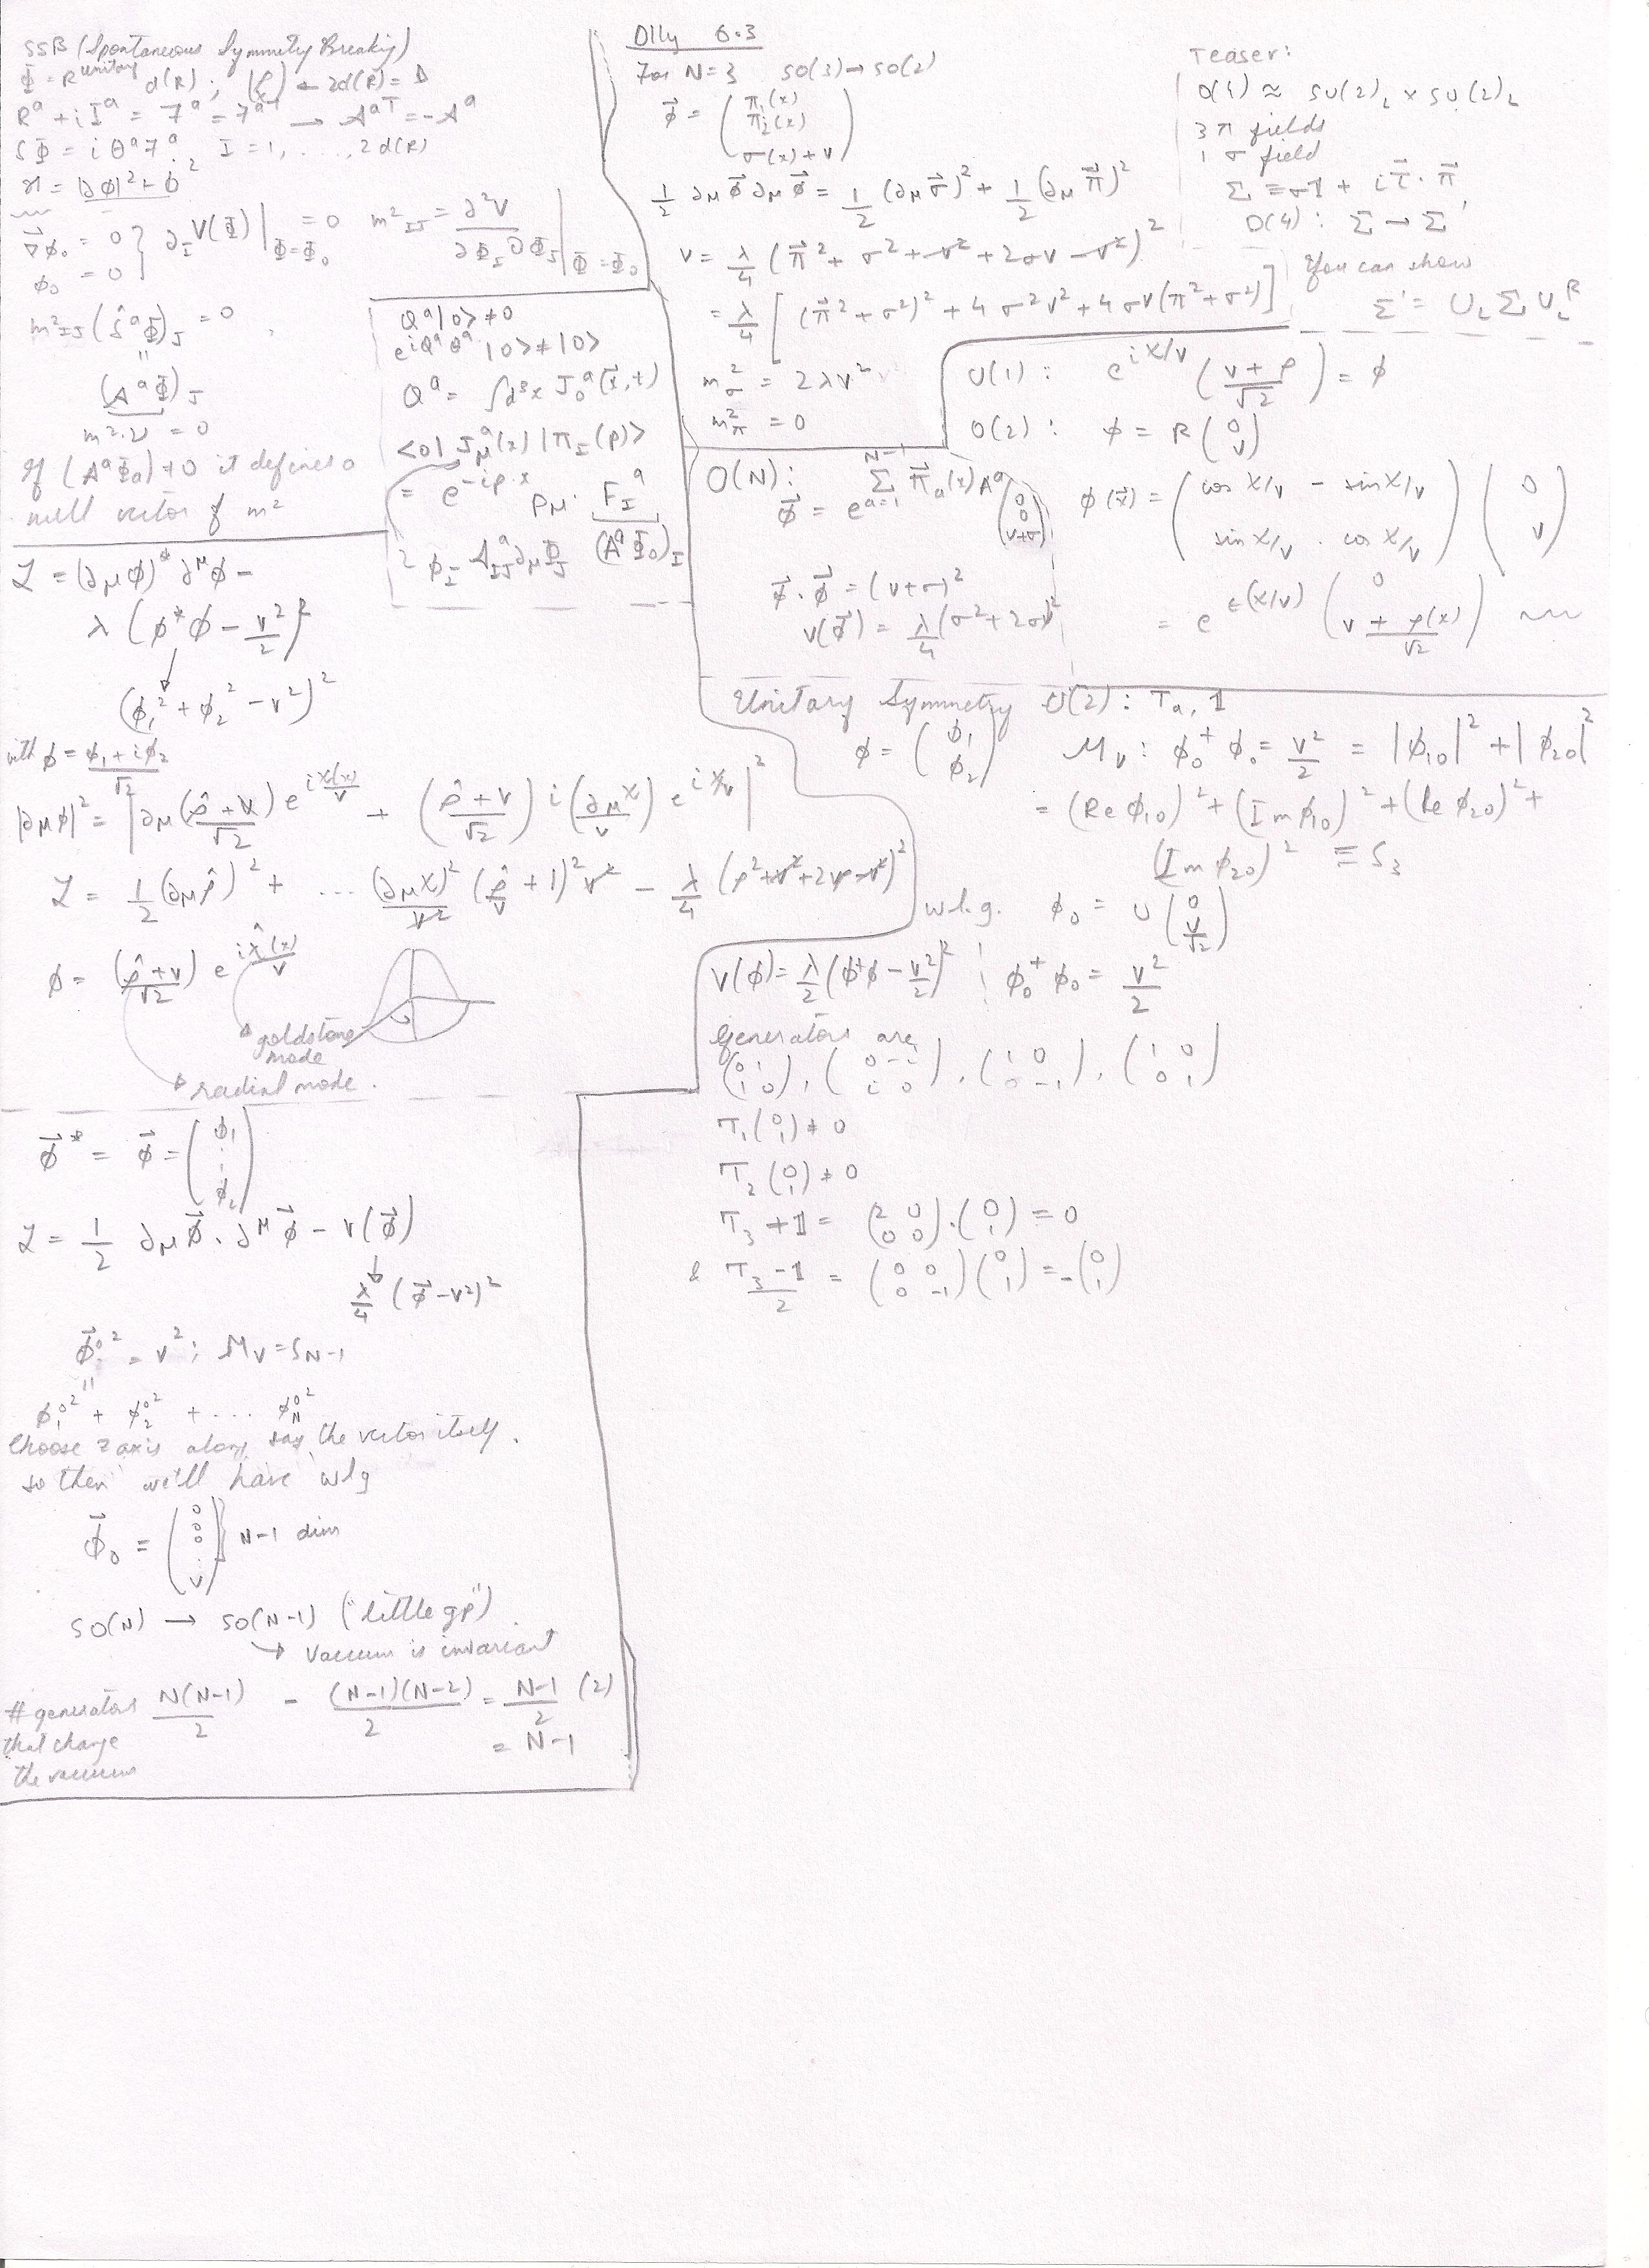 SSB (Spontaneous Symmetry Breaking)
Φ = R unitary d(R) ; ← 2d(R) = D
R^a + i I^a = 7^a = 7^a† → A^aT = -A^a
δΦ = i θ^a 7^a ; I = 1, ...., 2d(R)
H = |∂φ|² + φ̇²
∇φ₀ = 0
φ̇₀ = 0
∂_I V(Φ)|_{Φ=Φ₀} = 0 m²_IJ = ∂²V / ∂Φ_I ∂Φ_J |_{Φ=Φ₀}
m²_IJ (δ^a Φ)_J = 0
"
(A^a Φ)_J
m²·v = 0
If (A^a Φ₀) ≠ 0 it defines a
null vector of m²
Q^a |0> ≠ 0
e^{iQ^a θ^a} |0> ≠ |0>
Q^a = ∫d³x J₀^a (x, t)
<0| J_μ^a (x) | π_I (p)>
= e^{-ip·x} p_μ · F_I^a
φ_I A^a_IJ ∂_μ Φ_J (A^a Φ₀)_I
L = (∂_μ φ)* ∂^μ φ -
λ (φ*φ - v²/2)²
(φ₁² + φ₂² - v²)²
with φ = (φ₁ + iφ₂)/√2
|∂_μ φ|² = |∂_μ (ρ̂ + v)/√2 e^{iχ(x)/v} + ((ρ̂ + v)/√2) i (∂_μ χ/v) e^{iχ/v}|²
L = 1/2 (∂_μ ρ̂)² + ... (∂_μ χ)²/v² (ρ̂/v + 1)² v² - λ/4 (ρ² + v² + 2vρ - v²)²
φ = ((ρ̂ + v)/√2) e^{iχ̂(x)/v}
goldstone
mode
radial mode.
φ⃗* = φ⃗ = (φ₁ ⋮ φ₂)
L = 1/2 ∂_μ φ⃗ · ∂^μ φ⃗ - V(φ⃗)
λ/4 (φ⃗ - v²)²
φ⃗₀² = v² ; M_V = S_{N-1}
"
φ₁⁰² + φ₂⁰² + .... φ_N⁰²
Choose z axis along say the vector itself.
so then we'll have wlg
φ⃗₀ = (0 0 0 . v) } N-1 dim
SO(N) → SO(N-1) ("little gp")
→ Vacuum is invariant
# generators N(N-1)/2 - (N-1)(N-2)/2 = N-1/2 (2)
that change = N-1
the vacuum
Olly 6.3
For N=3 SO(3) → SO(2)
φ⃗ = (π₁(x) π₂(x) σ(x)+v)
1/2 ∂_μ φ⃗ ∂_μ φ⃗ = 1/2 (∂_μ σ⃗)² + 1/2 (∂_μ π⃗)²
V = λ/4 (π⃗² + σ² + v² + 2σv - v²)²
= λ/4 [(π⃗² + σ²)² + 4σ²v² + 4σv(π² + σ²)]
m_σ² = 2λv²
m_π² = 0
Teaser:
O(4) ≈ SU(2)_L × SU(2)_L
3 π fields
1 σ field
Σ = σ1 + i τ⃗ · π⃗
O(4) : Σ → Σ'
You can show
Σ' = U_L Σ U_L^R
U(1) : e^{iχ/v} ((v + ρ)/√2) = φ
O(2) : φ = R (0 v)
φ(x⃗) = (cos χ/v - sin χ/v sin χ/v . cos χ/v) (0 v)
= e^{ε(χ/v)} (0 (v + ρ(x))/√2)
O(N) : φ⃗ = e^{Σ_{a=1}^{N-1} π⃗_a(x) A^a} (0 0 v+σ)
φ⃗ · φ⃗ = (v + σ)²
V(φ⃗) = λ/4 (σ² + 2σv)²
Unitary Symmetry U(2) : T_a, 1
φ = (φ₁ φ₂) M_V : φ₀† φ₀ = v²/2 = |φ₁₀|² + |φ₂₀|²
= (Re φ₁₀)² + (Im φ₁₀)² + (Re φ₂₀)² +
(Im φ₂₀)² ≡ S₃
w.l.g. φ₀ = U (0 v/√2)
V(φ) = λ/2 (φ†φ - v²/2)² ¦ φ₀† φ₀ = v²/2
Generators are
(0 1 1 0), (0 -i i 0), (1 0 0 -1), (1 0 0 1)
T₁ (0 1) ≠ 0
T₂ (0 1) ≠ 0
T₃ + 1 = (2 0 0 0) · (0 1) = 0
& (T₃ - 1)/2 = (0 0 0 -1) (0 1) = -(0 1)